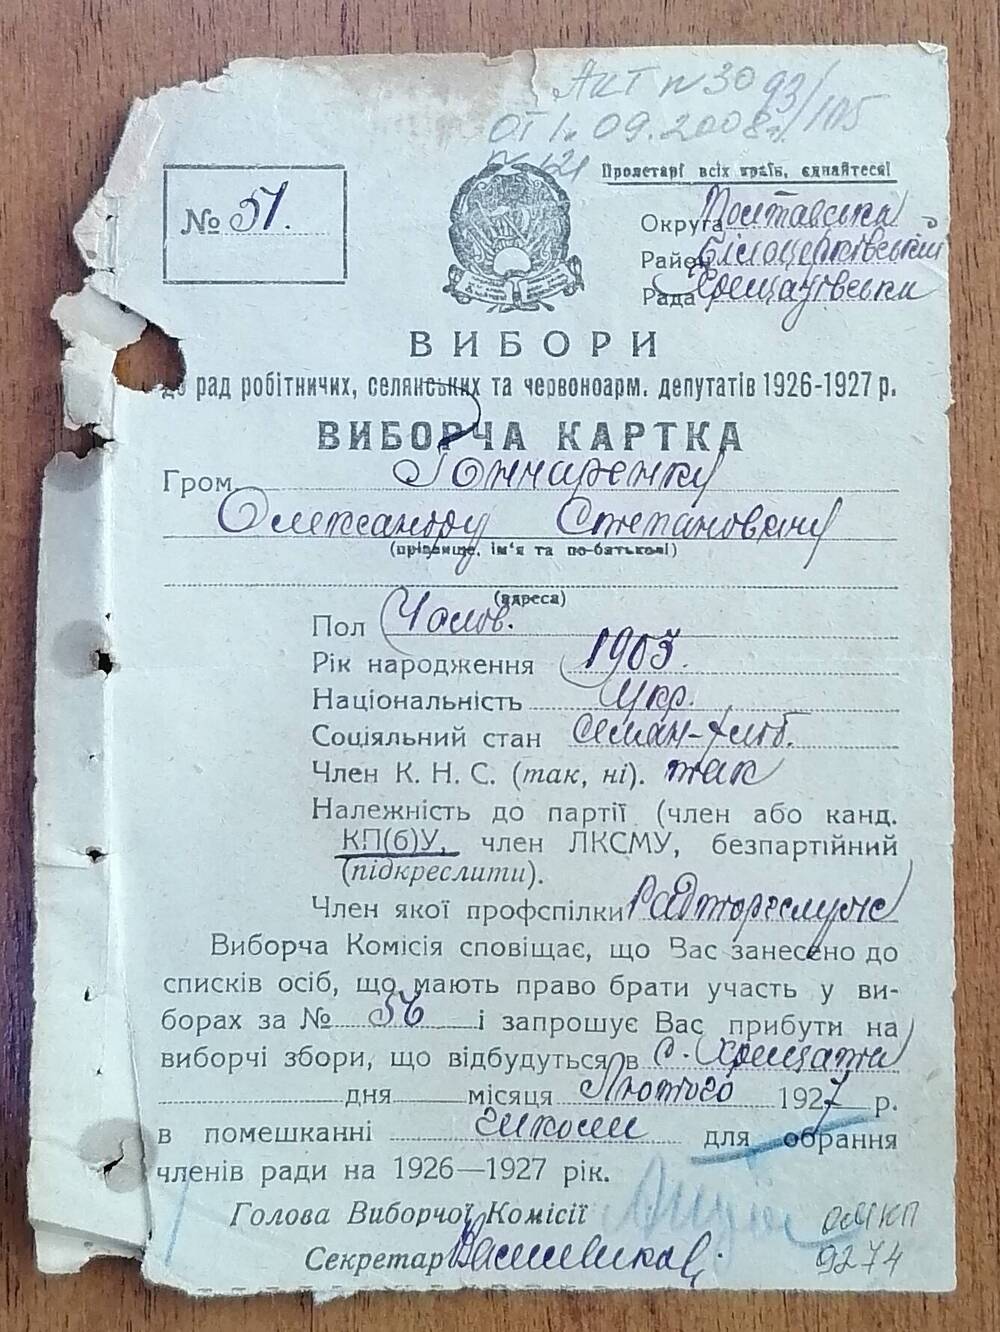 Акт № 3093/105
от 1. 09. 2008 г.
№ 121
Пролетарі всіх країн, єднайтеся!
№ 51.
Округа Полтавська
Район Білоцерківський
Рада Хрещатівська
ВИБОРИ
до рад робітничих, селянських та червоноарм. депутатів 1926-1927 р.
ВИБОРЧА КАРТКА
Гром. Гончаренку
Олександру Степановичу
(прізвище, ім'я та по-батькові)
(адреса)
Пол Чолов.
Рік народження 1903.
Національність Укр.
Соціяльний стан Селян-хліб.
Член К. Н. С. (так, ні). так
Належність до партії (член або канд.
КП(б)У, член ЛКСМУ, безпартійний
(підкреслити).
Член якої профспілки Радторгслуж
Виборча Комісія сповіщає, що Вас занесено до
списків осіб, що мають право брати участь у ви-
борах за № 56 і запрошує Вас прибути на
виборчі збори, що відбудуться в с. Хрещати
дня місяця Лютого 1927 р.
в помешканні школи для обрання
членів ради на 1926—1927 рік.
Голова Виборчої Комісії
Секретар
ОМКП
9274